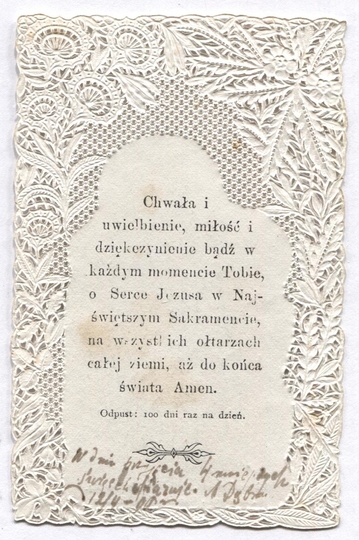 Chwała i
uwielbienie, miłość i
dziękczynienie bądź w
każdym momencie Tobie,
o Serce Jezusa w Naj-
świętszym Sakramencie,
na wszystkich ołtarzach
całej ziemi, aż do końca
świata Amen.
Odpust: 100 dni raz na dzień.
W dniu